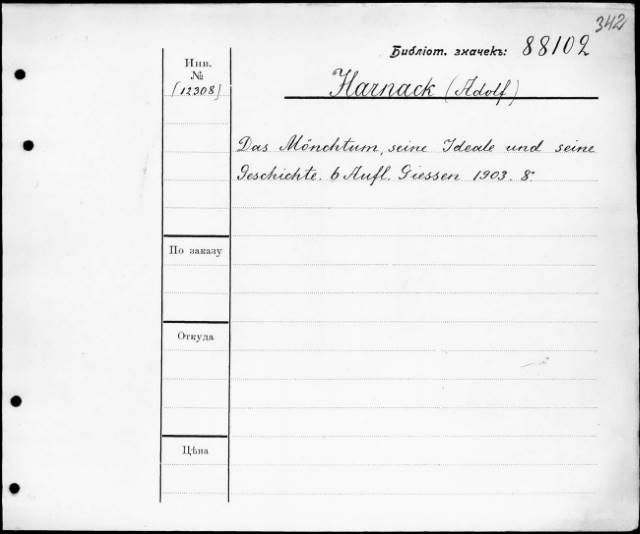 342
Библіот. значекъ: 88102
Инв.
№
[12308]
Harnack (Adolf)
Das Mönchtum, seine Ideale und seine
Geschichte. 6 Aufl. Giessen 1903. 8.
По заказу
Откуда
Цѣна